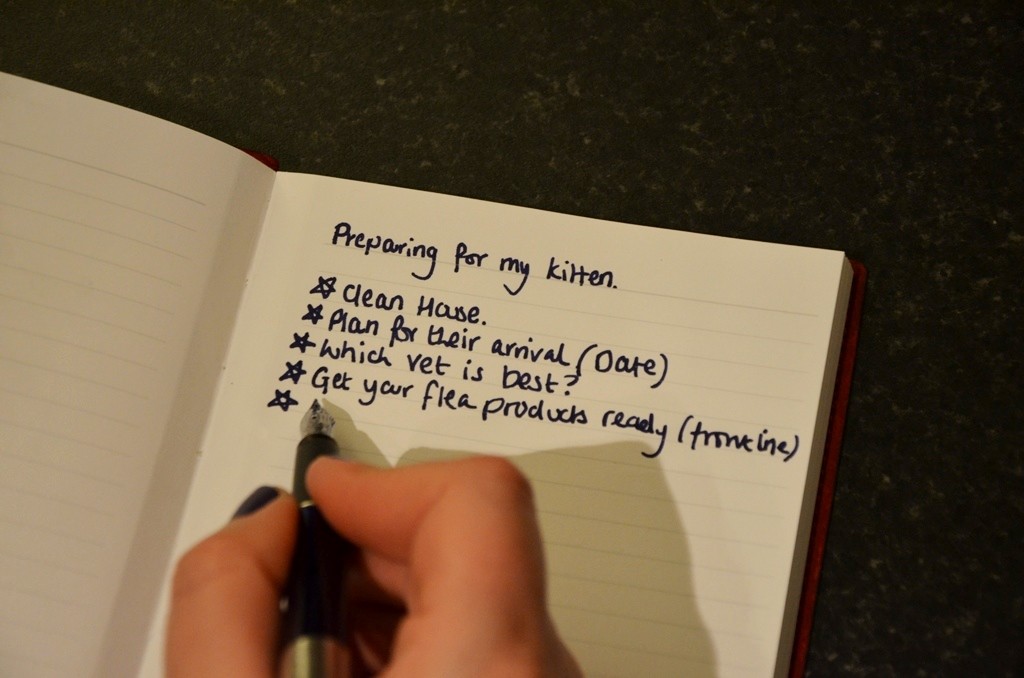 Preparing for my kitten.
☆ Clean House.
☆ Plan for their arrival (Date)
☆ Which vet is best?
☆ Get your flea products ready (frontline)
☆